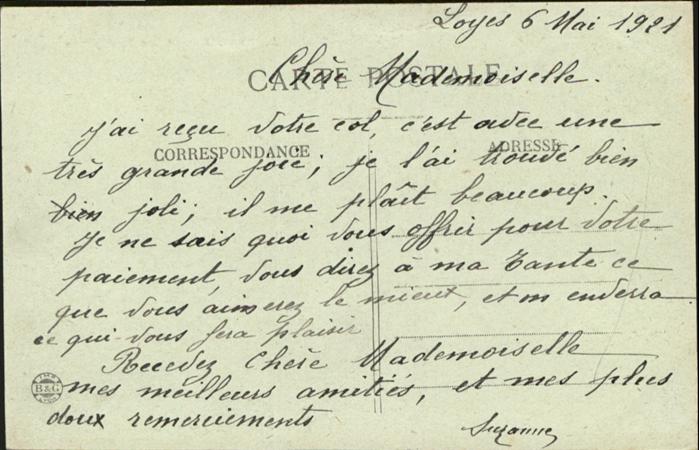 Loyes 6 Mai 1921
CARTE POSTALE
Chère Mademoiselle.
J'ai reçu votre col, c'est avec une
CORRESPONDANCE
ADRESSE
très grande joie; je l'ai trouvé bien
bien joli; il me plaît beaucoup.
Je ne sais quoi vous offrir pour votre
paiement, vous direz à ma Tante ce
que vous aimerez le mieux, et m enverra
ce qui vous fera plaisir
Recevez Chère Mademoiselle
mes meilleurs amitiés, et mes plus
doux remerciements
Suzanne
B&G